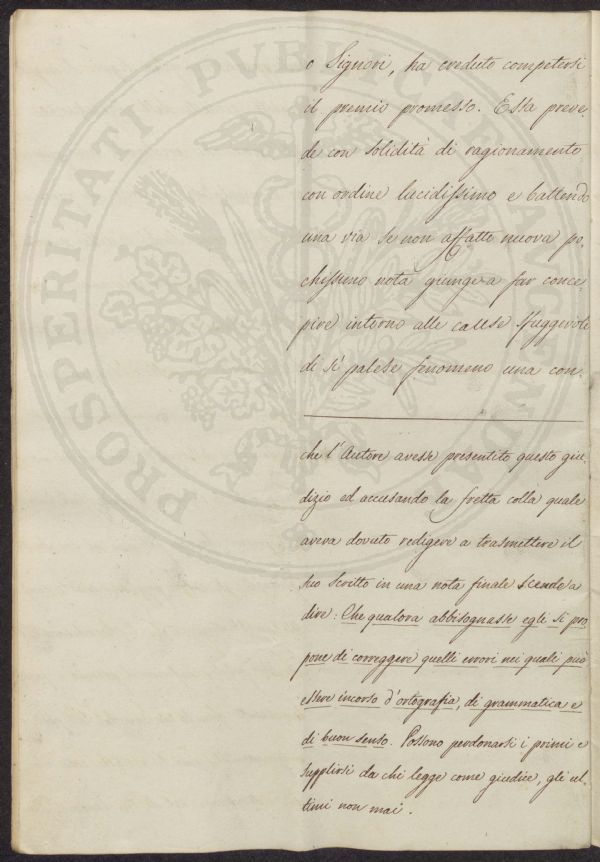 o Signori, ha creduto competersi
il premio promesso. Essa prece-
de con solidità di ragionamento
con ordine lucidissimo e battendo
una via se non affatto nuova po-
chissimo nota giunge a far conce-
pire intorno alle cause sfuggevoli
di sì palese fenomeno una con-
che l'Autore avesse presentito questo giu-
dizio ed accusando la fretta colla quale
aveva dovuto redigere a trasmettere il
suo scritto in una nota finale scende a
dire: Che qualora abbisognasse egli si pro
pone di correggere quelli errori nei quali può
essere incorso d'ortografia, di grammatica e
di buon senso. Possono perdonarsi i primi e
supplirsi da chi legge come giudice, gli ul-
timi non mai.
PROSPERITATI PUBLICAE AUGENDAE